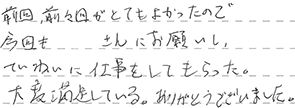 前回、前々回がとてもよかったので
今回も　　さんにお願いし、
ていねいに仕事をしてもらった。
大変満足している。ありがとうございました。